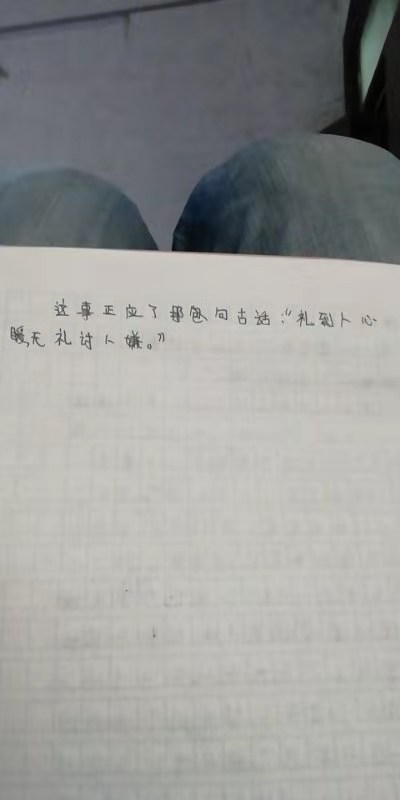 这事正应了那句古话:“礼到人心
暖,无礼讨人嫌。”